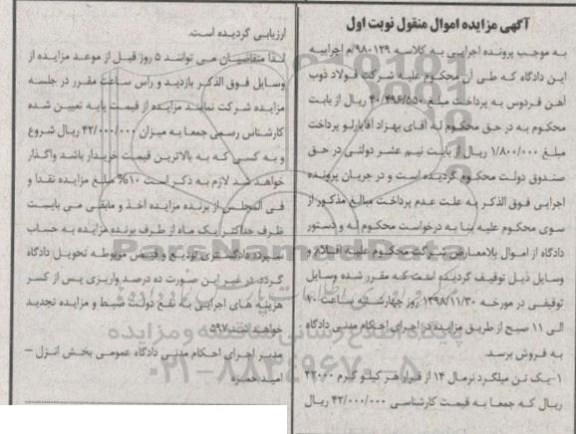 آگهی مزایده اموال منقول نوبت اول
به موجب پرونده اجرایی به کلاسه ۹۸۰۱۳۹/م اجراییه
این دادگاه که طی آن محکوم علیه شرکت فولاد ذوب
آهن فردوس به پرداخت مبلغ ۴۰/۴۹۶/۵۵۰ ریال از بابت
محکوم به در حق محکوم له آقای بهزاد آقابارلو پرداخت
مبلغ ۱/۸۰۰/۰۰۰ ریال از بابت نیم عشر دولتی در حق
صندوق دولت محکوم گردیده است و در جریان پرونده
اجرایی فوق الذکر به علت عدم پرداخت مبالغ مذکور از
سوی محکوم علیه بنا به درخواست محکوم له و دستور
دادگاه از اموال بلامعارض شرکت محکوم علیه اقلام و
وسایل ذیل توقیف گردیده است که مقرر شده وسایل
توقیفی در مورخه ۱۳۹۸/۱۱/۳۰ روز چهارشنبه ساعت ۱۰
الی ۱۱ صبح از طریق مزایده در اجرای احکام مدنی دادگاه
به فروش برسد.
۱-یک تن میلگرد نرمال ۱۴ از قرار هر کیلو گرم ۴۲۰۰۰
ریال که جمعا به قیمت کارشناسی ۴۲/۰۰۰/۰۰۰ ریال
ارزیابی گردیده است.
لذا متقاضیان می توانند ۵ روز قبل از موعد مزایده از
وسایل فوق الذکر بازدید و راس ساعت مقرر در جلسه
مزایده شرکت نمایند مزایده از قیمت پایه تعیین شده
کارشناس رسمی جمعا به میزان ۴۲/۰۰۰/۰۰۰ ریال شروع
و به کسی که به بالاترین قیمت خریدار باشد واگذار
خواهد شد لازم به ذکر است ۱۰% مبلغ مزایده نقدا و
فی المجلس از برنده مزایده اخذ و مابقی می بایست
ظرف حداکثر یک ماه از طرف برنده مزایده به حساب
سپرده دادگستری تودیع و قبض مربوطه تحویل دادگاه
گردد، در غیر این صورت ده درصد واریزی پس از کسر
هزینه های اجرایی به نفع دولت ضبط و مزایده تجدید
خواهد شد. ۵۹۷
مدیر اجرای احکام مدنی دادگاه عمومی بخش انزل -
امید حمزه
ParsNamadData
پایگاه اطلاع رسانی مناقصه و مزایده
۰۲۱-۸۸۳۴۹۶۷۰-۵